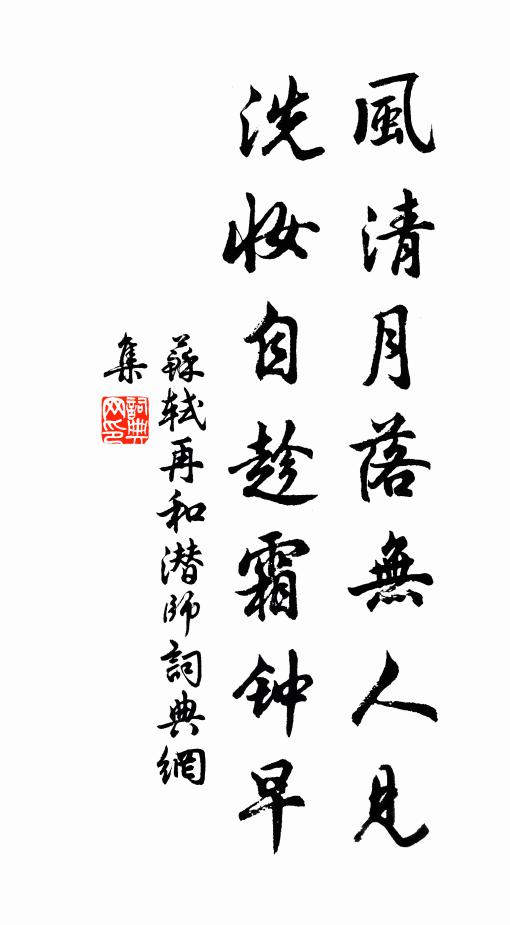 風清月落無人見
洗妝自趁霜钟早
蘇軾再和潜師詞典網
集
詞典
网印